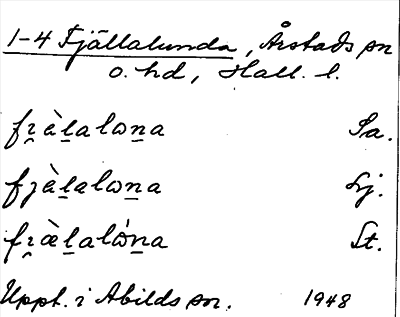 1-4 Fjällalunda, Årstads sn
o. hd, Hall. l.
fi̯àl̠alωn̠a Sa.
fjàl̠alωn̠a Lj.
fi̯æ̀l̠alώn̠a St.
Uppt. i Abilds sn. 1948